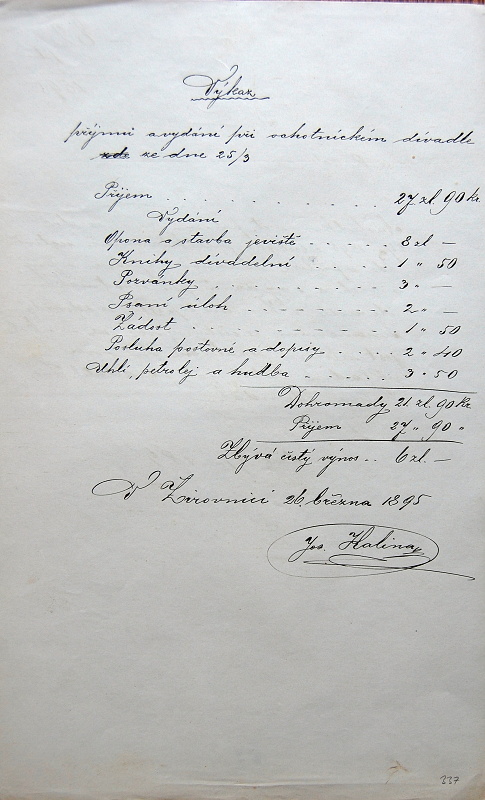 Výkaz
příjmů a vydání při ochotnickém divadle
zde ze dne 25/3
Příjem . . . . . . . . . 27 zl. 90 kr.
Vydání
Opona a stavba jeviště . . . . . 8 zl —
Knihy divadelní . . . . . 1 " 50
Pozvánky . . . . . . . . 3 " —
Psaní úloh . . . . . . . 2 " —
Žádost . . . . . . . . . 1 " 50
Posluha poštovné a dopisy . . . . 2 " 40
Uhlí, petrolej a hudba . . . . 3 " 50
Dohromady 21 zl. 90 kr.
Příjem 27 " 90 "
Zbývá čistý výnos . . 6 zl. —
V Žirovnici 26. března 1895
Jos. Kalina
237